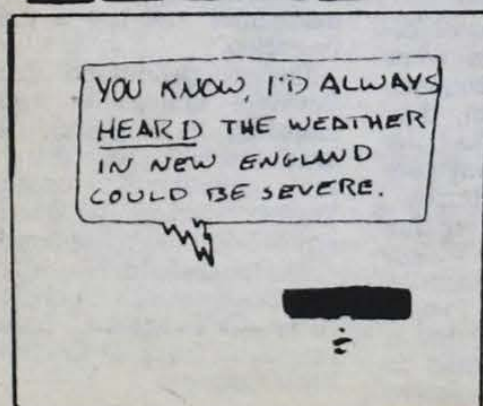 YOU KNOW, I'D ALWAYS
HEARD THE WEATHER
IN NEW ENGLAND
COULD BE SEVERE.